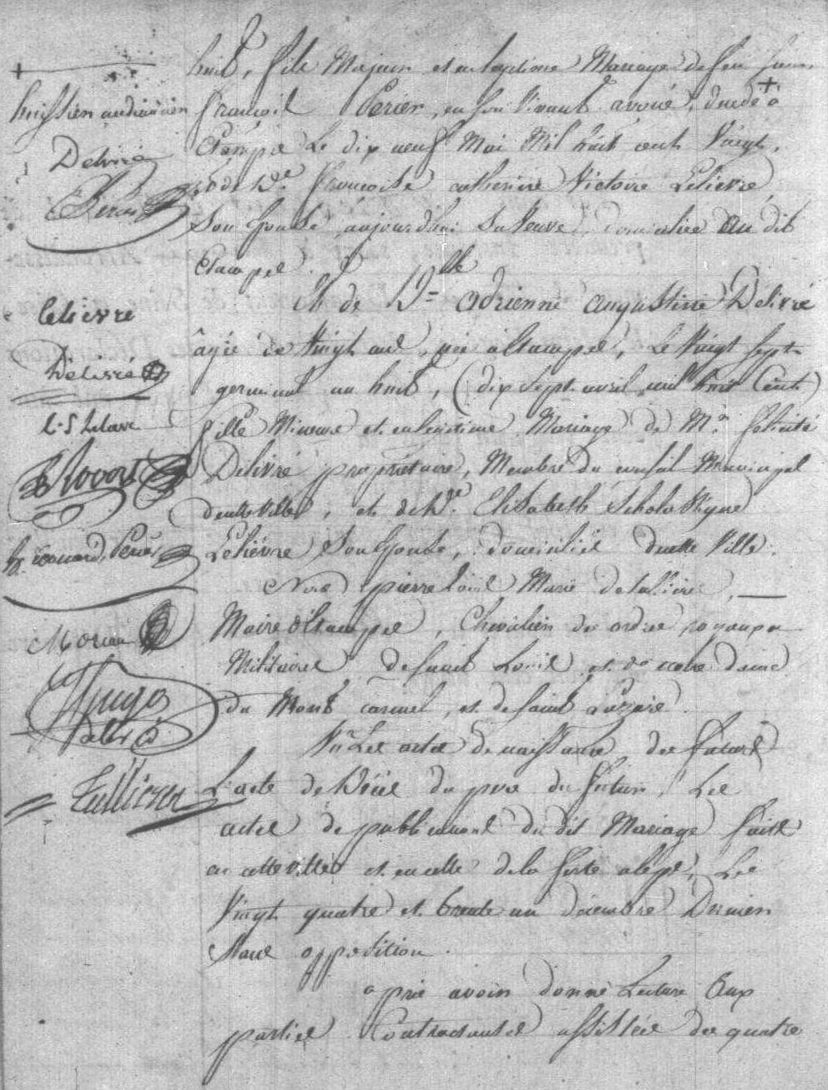 huit, fils Majeur et en légitime Mariage de feu
françois Perier, en son vivant avoué, décédé à
Etampes le dix neuf Mai Mil huit cent Vingt,
et de De. françoise catherine Victoire Lelievre
Son Epouse, aujourd'hui sa Veuve, domiciliée au dit
Etampes.
Et de Dlle adrienne augustine Delivré
âgée de Vingt ans, née à Etampes, Le Vingt Sept
germinal an huit, (dix sept avril mil huit Cent)
fille Mineure et en légitime Mariage de Mr. félicité
Delivré propriétaire, Membre du conseil Municipal
de cette ville, et de De. Elisabeth Scholastique
Lelièvre Son Epouse, domiciliés de cette Ville.
Nous pierre Louis Marie
Maire d'Etampes, Chevalier des ordres royaux
Militaires de saint Louis et de
du Mont carmel, et de saint Lazare.
Vu Les actes de naissance des futurs
L'acte de décès du pere du futur, Les
actes de publications du dit Mariage faites
en cette ville et en celle de la ferté alépe, Les
Vingt quatre et trente un décembre Dernier
Sans opposition.
après avoir donné Lecture aux
parties Contractantes assistées de quatre
+
huissier audiencier
Delivré
Perier
Lelievre
Delivré
Edouard Perier
Moreau
Hugo